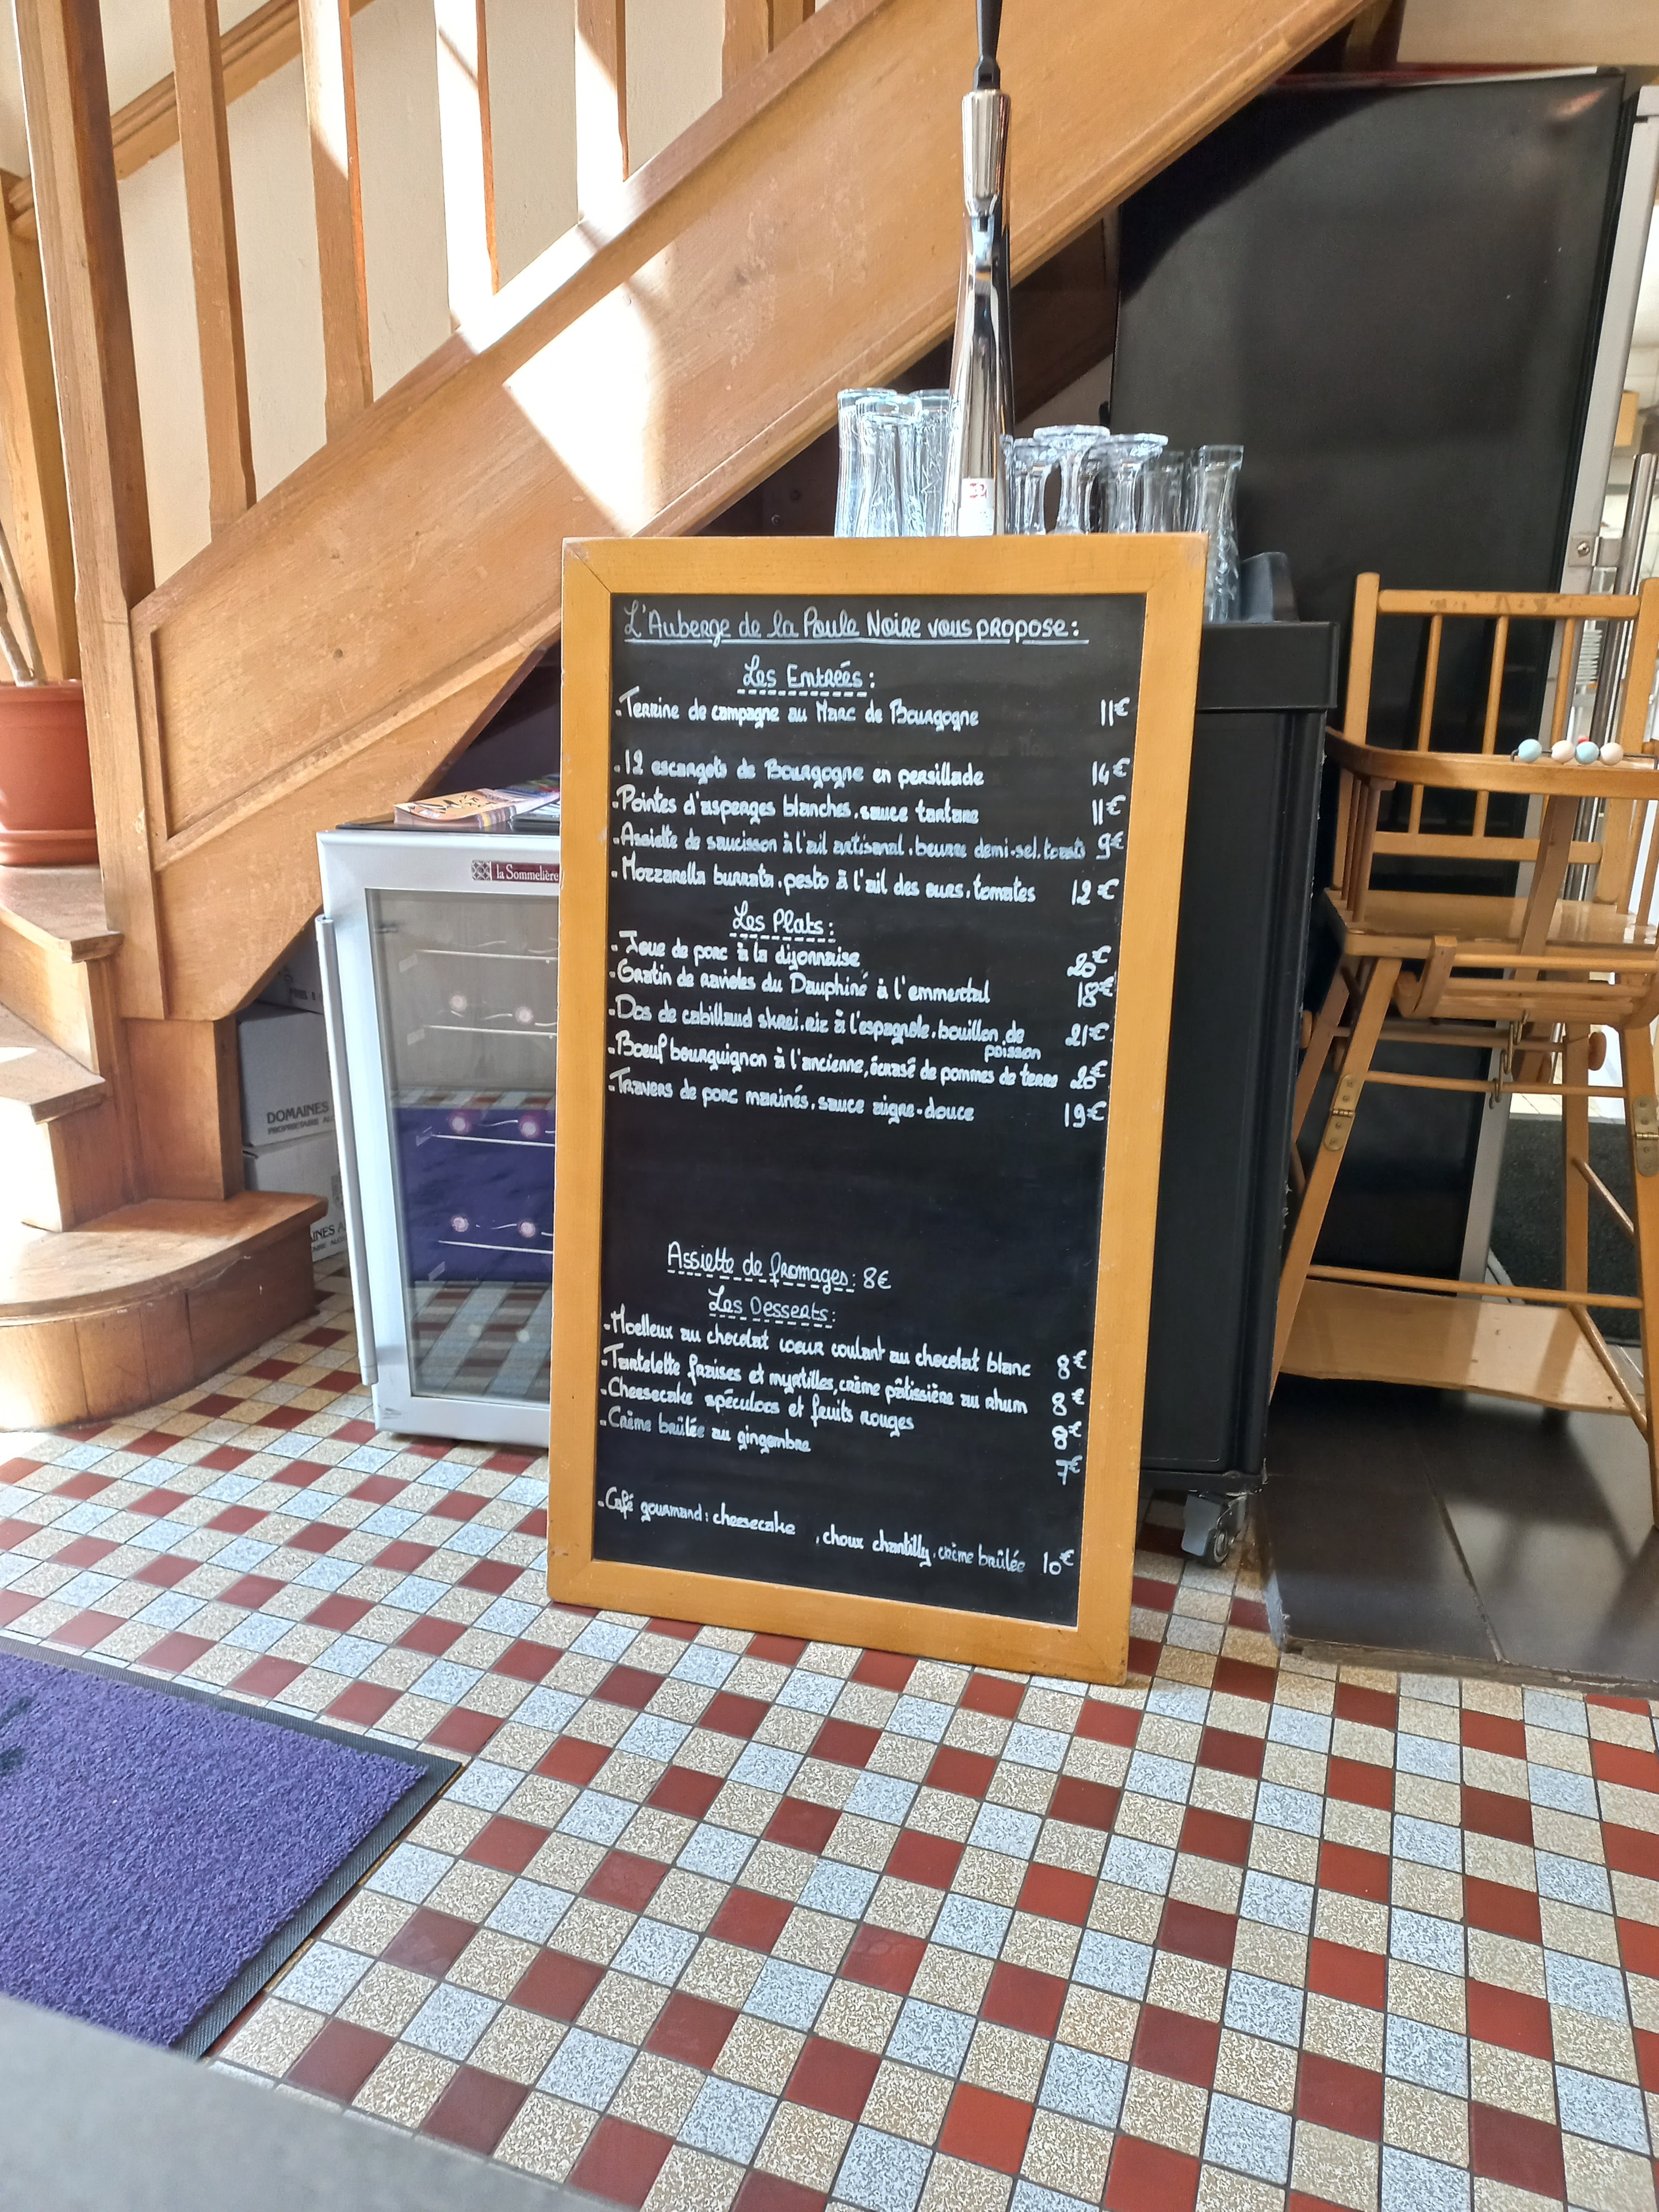 L'Auberge de la Poule Noire vous propose:
Les Entreés:
-Terrine de campagne au Marc de Bourgogne 11€
-12 escargots de Bourgogne en persillade 14€
-Pointes d'asperges blanches, sauce tartare 11€
-Assiette de saucisson à l'ail artisanal, beurre demi-sel, toasts 9€
-Mozzarella burrata, pesto à l'ail des ours, tomates 12€
Les Plats:
-Joue de porc à la dijonnaise 20€
-Gratin de ravioles du Dauphiné à l'emmental 18€
-Dos de cabillaud skrei, riz à l'espagnole, bouillon de 21€
poisson
-Boeuf bourguignon à l'ancienne, écrasé de pommes de terres 20€
-Travers de porc marinés, sauce aigre-douce 19€
Assiette de fromages: 8€
Les Desserts:
-Moelleux au chocolat coeur coulant au chocolat blanc 8€
-Tartelette fraises et myrtilles, crème pâtissière au rhum 8€
-Cheesecake spéculoos et fruits rouges 8€
-Crème brûlée au gingembre 7€
-Café gourmand: cheesecake , choux chantilly, crème brûlée 10€
la Sommelière
DOMAINES